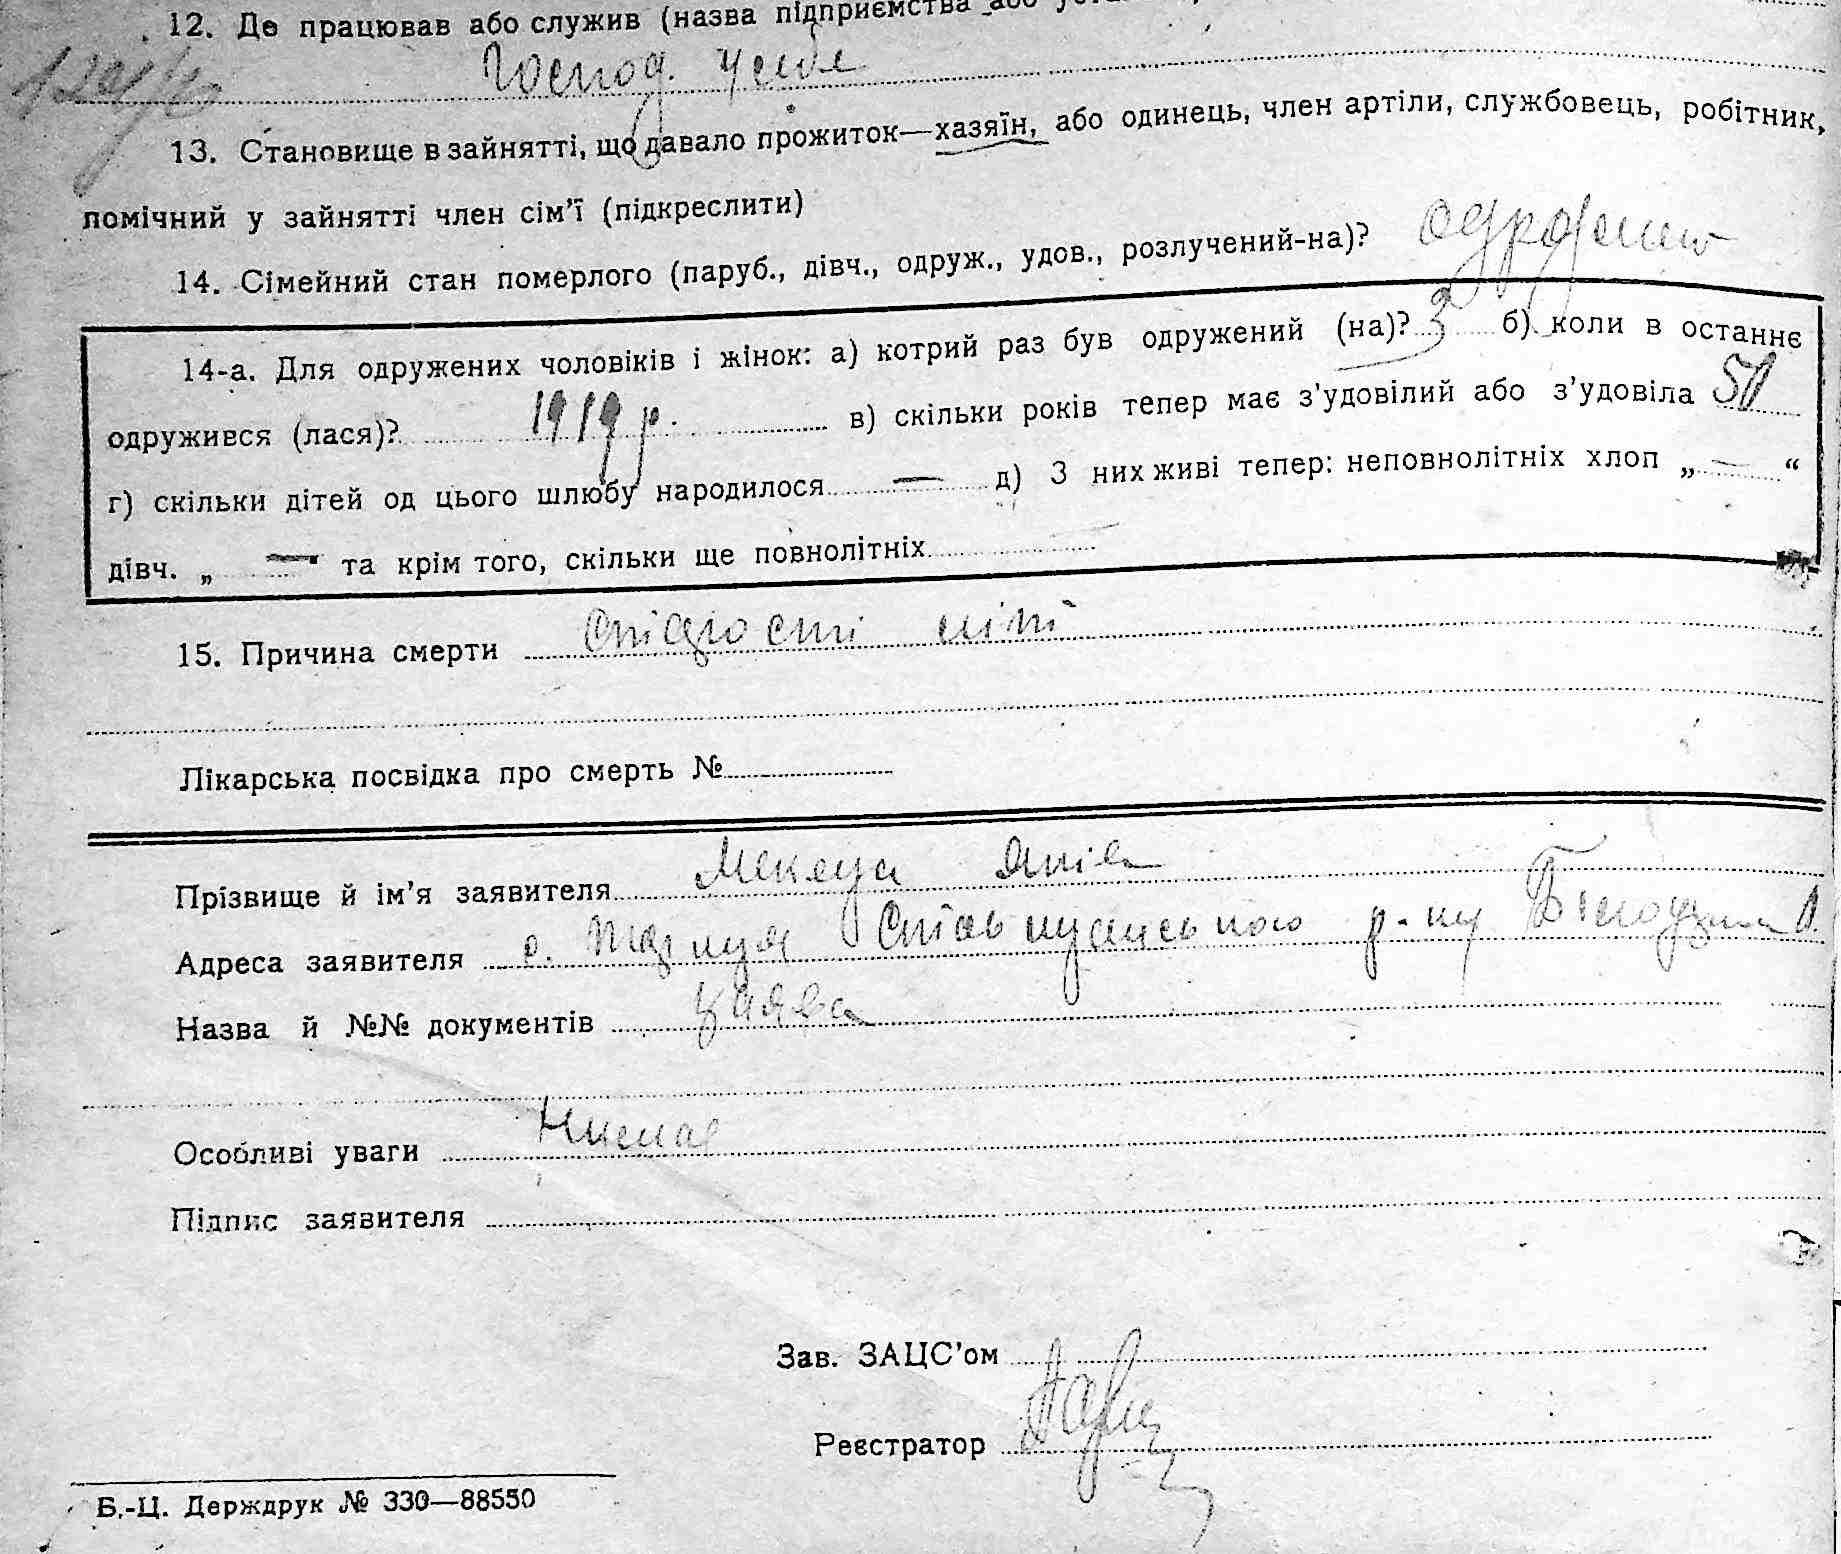 12. Де працював або служив (назва підприємства або
Господ. у себе
13. Становище в зайнятті, що давало прожиток—хазяїн, або одинець, член артіли, службовець, робітник,
помічний у зайнятті член сім'ї (підкреслити)
14. Сімейний стан померлого (паруб., дівч., одруж., удов., розлучений-на)?
14-а. Для одружених чоловіків і жінок: а) котрий раз був одружений (на)? 3 б) коли в останнє
одружився (лася)? 1919 р. в) скільки років тепер має з'удовілий або з'удовіла 50
г) скільки дітей од цього шлюбу народилося — д) З них живі тепер: неповнолітніх хлоп „ — “
дівч. „ — " та крім того, скільки ще повнолітніх —
15. Причина смерти старости літ
Лікарська посвідка про смерть №
Прізвище й ім'я заявителя
Адреса заявителя с. р-ну
Назва й №№ документів заява
Особливі уваги Немає
Підпис заявителя
Зав. ЗАЦС'ом
Реєстратор
Б.-Ц. Держдрук № 330—88550